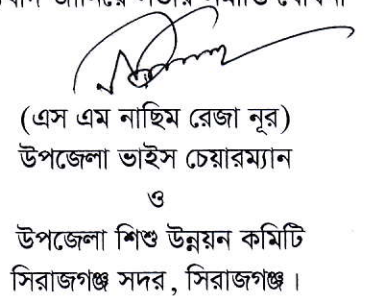 (এস এম নাছিম রেজা নূর)
উপজেলা ভাইস চেয়ারম্যান
ও
উপজেলা শিশু উন্নয়ন কমিটি
সিরাজগঞ্জ সদর, সিরাজগঞ্জ।